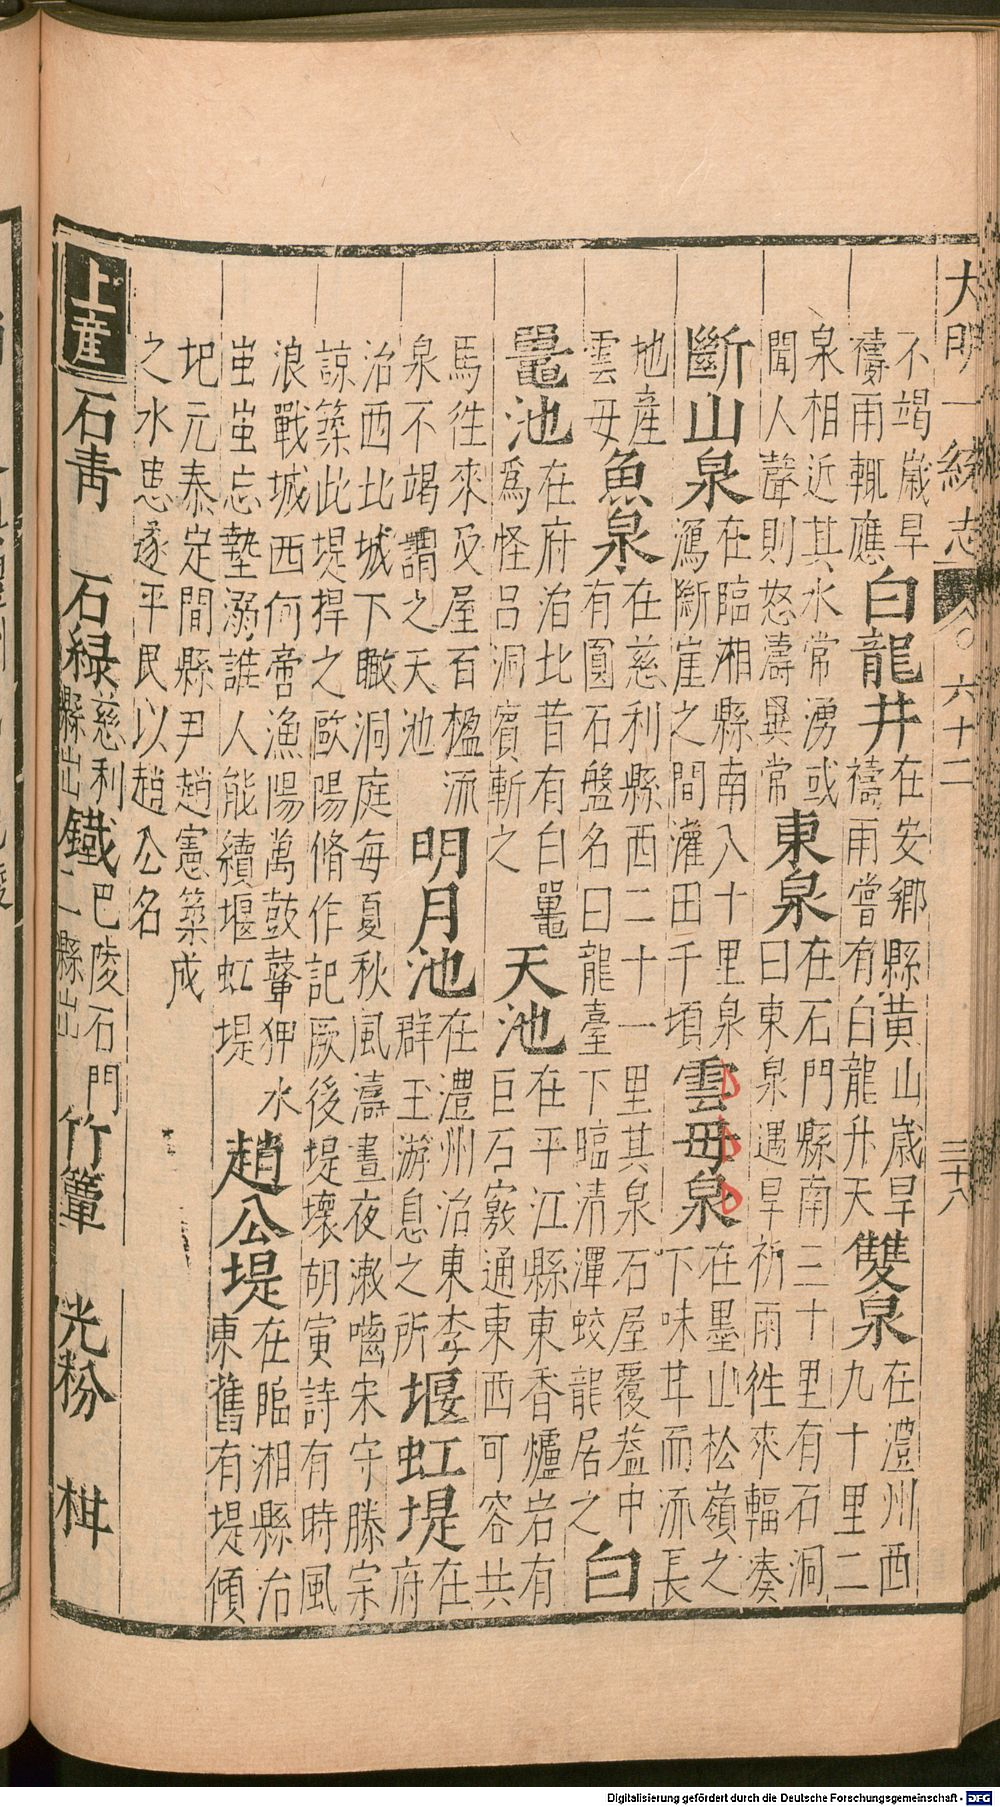 大明一統志 卷六十二 三十八
不竭歲旱禱雨輒應 白龍井 在安鄉縣黃山歲旱禱雨嘗有白龍升天 雙泉 在澧州西九十里二
泉相近其水常湧或聞人聲則怒濤異常 東泉 在石門縣南三十里有石洞曰東泉遇旱祈雨徃來輻湊
斷山泉 在臨湘縣南八十里泉瀉斷崖之間灌田千頃 雲母泉 在墨山松嶺之下味甘而流長
地産雲母 魚泉 在慈利縣西二十一里其泉石屋覆蓋中有圓石盤名曰龍臺下臨清潭蛟龍居之 白
鼉池 在府治北昔有白鼉爲怪呂洞賓斬之 天池 在平江縣東香爐岩有巨石竅通東西可容共
馬徃來及屋百楹流泉不竭謂之天池 明月池 在澧州治東李群玉游息之所 堰虹堤 在府
治西北城下瞰洞庭每夏秋風濤晝夜漱嚙宋守滕宗諒築此堤捍之歐陽脩作記厥後堤壞胡寅詩有時風
浪戰城西何啻漁陽萬鼓鼙狎水蚩蚩忘墊溺誰人能續堰虹堤 趙公堤 在臨湘縣治東舊有堤傾
圯元泰定間縣尹趙憲築成之水患遂平民以趙公名
土産 石青 石綠 慈利縣出 鐵 巴陵石門二縣出 竹簟 光粉 柑
Digitalisierung gefördert durch die Deutsche Forschungsgemeinschaft - DFG